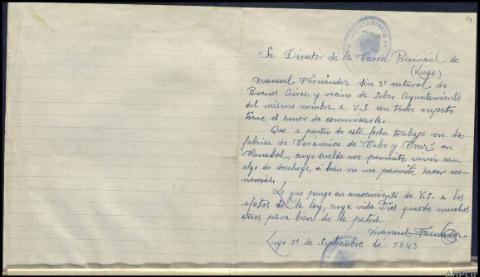 14
Sr. Director de la Carcel Provincial de
(Lugo)
Manuel Fernández sin 2º natural de
Buenos Aires, y vecino de Sober Ayuntamiento
del mismo nombre, a V.S con todo respeto
tiene el honor de comunicarle.
Que a partir de esta fecha trabajo en la
fabrica de Ceramica de "Rubo y " en
Canabal, cuyo sueldo me permite vivir con
algo de desahogo, si bien no me permite hacer eco-
nomias.
Lo que pongo en conocimiento de V.S. a los
efectos de la ley, cuya vida Dios guarde muchos
años para bien de la patria.
Manuel Fernández
Lugo 1º de Septiembre de 1943